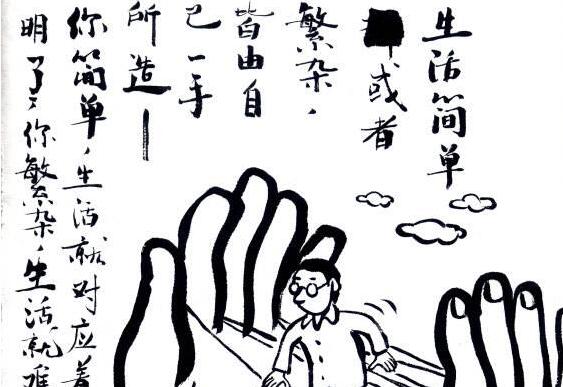 生活简单
或者
繁杂，
皆由自
己一手
所造—
你简单，生活就对应着
明了；你繁杂，生活就难